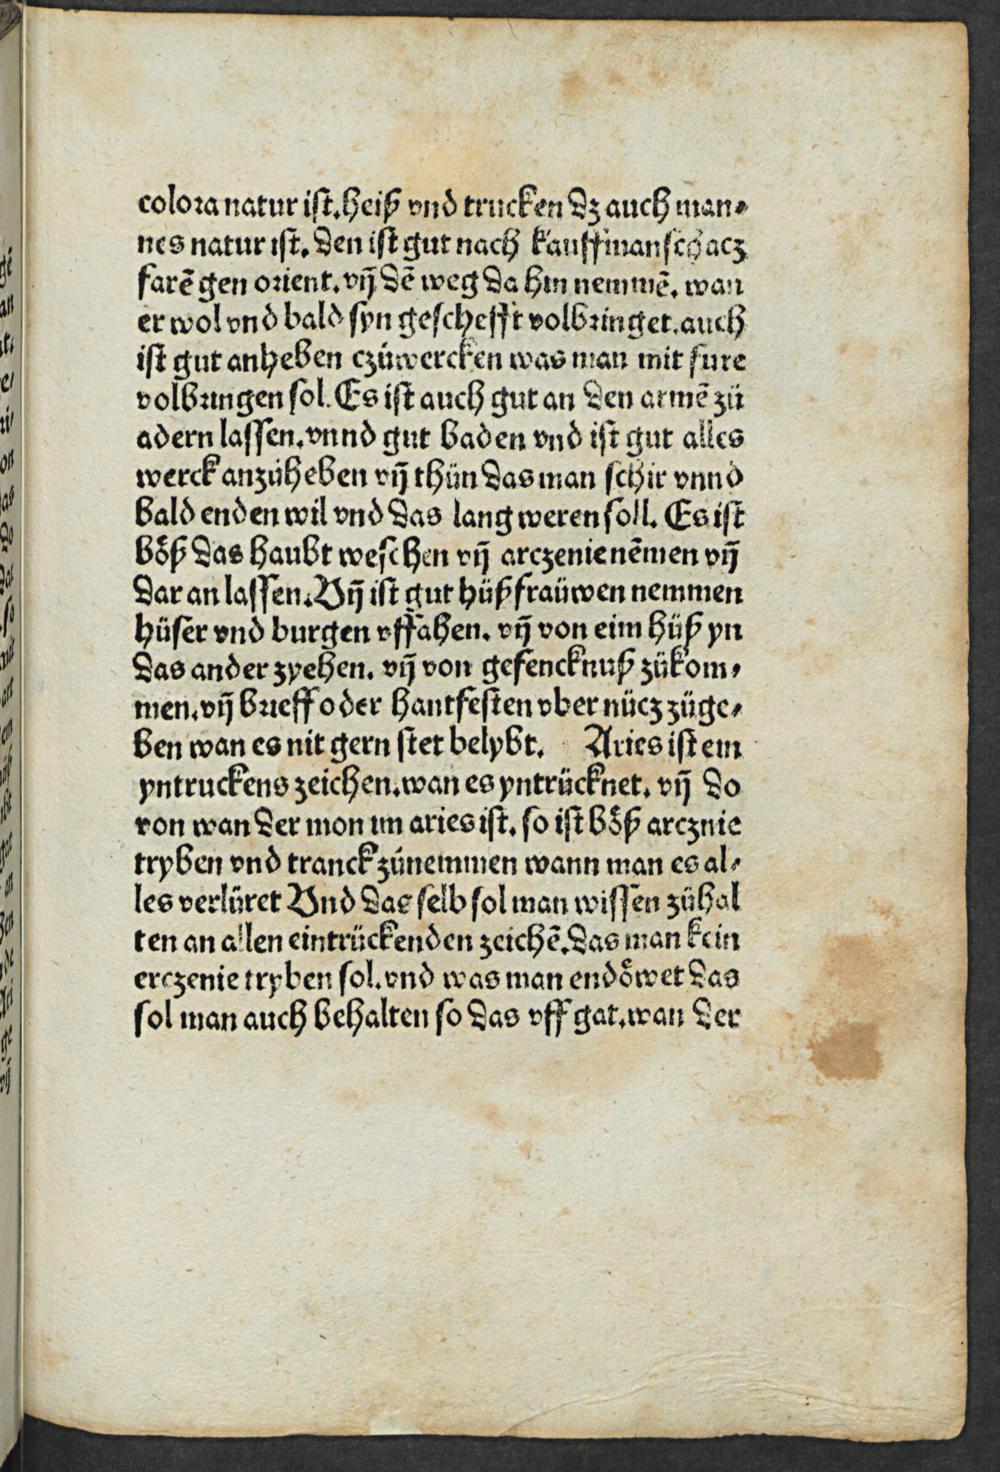 colora natur ist. heiß vnd trucken dz auch man⸗
nes natur ist. den ist gut nach kauffmanschacz
farē gen orient. vn̄ dē weg da hin nemmē. wan
er wol vnd bald syn geschefft volbringet. auch
ist gut anheben czü wercken was man mit fure
volbringen sol. Es ist auch gut an den armē zü
adern lassen. vnnd gut baden vnd ist gut alles
werck anzüheben vn̄ thün das man schir vnnd
bald enden wil vnd das lang weren soll. Es ist
böß das haubt weschen vn̄ arczenie nēmen vn̄
dar an lassen. Vn̄ ist gut hüßfraüwen nemmen
hüser vnd burgen vffahen. vn̄ von eim hüß yn
das ander zyehen. vn̄ von gefencknuß zükom⸗
men. vn̄ brieff oder hantfesten vber nücz züge⸗
ben wan es nit gern stet belybt. Aries ist ein
yntruckens zeichen. wan es yntrücknet. vn̄ do
von wan der mon im aries ist. so ist böß arcznie
tryben vnd tranck zünemmen wann man es al⸗
les verlüret Vnd das selb sol man wissen zühal
ten an allen eintrückenden zeichē. das man kein
erczenie tryben sol. vnd was man endöwet das
sol man auch behalten so das vff gat. wan der